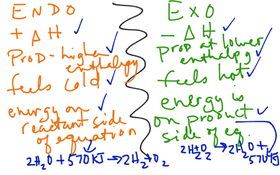 ENDO
+ ΔH
PROD-higher
enthalpy
feels cold
energy on
reactant side
of equation
2H₂O + 570 KJ → 2H₂ + O₂
EXO
- ΔH
PROD at lower
enthalpy
feels hot
energy is
on product
side of eq.
2H₂O + 570 KJ